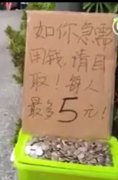 如你急需
用钱,请自
取!每人
最多5元!